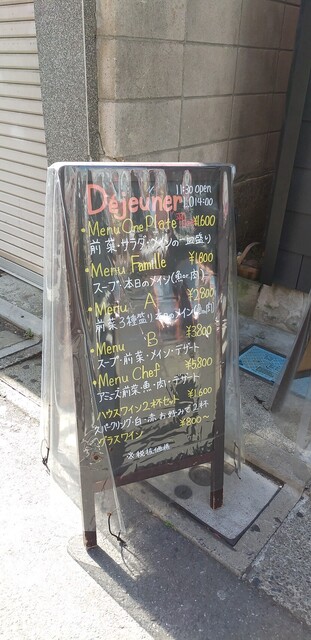 Déjeuner 11:30 open
L.O 14:00
•Menu One Plate ¥1600
前菜・サラダ・メインの一皿盛り
•Menu Famille ¥1800
スープ・本日のメイン(魚or肉)
•Menu A ¥2800
前菜3種盛り・本日のメイン(魚or肉)
•Menu B ¥3800
スープ・前菜・メイン・デザート
•Menu Chef ¥5800
アミューズ・前菜・魚・肉・デザート
ハウスワイン2杯セット ¥1,600
スパークリング・白・赤 お好みで2杯
グラスワイン ¥800〜
税抜価格